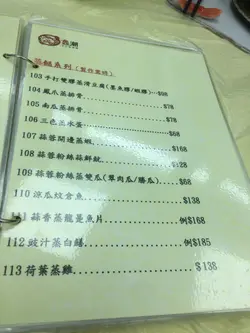 鼎潮
蒸餸系列 (製作需時)
103 手打雙膠蒸滑豆腐(墨魚膠/蝦膠)...$68
104 鳳爪蒸排骨..................$78
105 南瓜蒸排骨..................$78
106 三色蒸水蛋..................$68
107 蒜蓉開邊蒸蝦................$168
108 蒜蓉粉絲蒸鮮魷..............$128
109 蒜蓉粉絲蒸雙瓜(翠肉瓜/勝瓜)...$68
110 涼瓜炆倉魚..................$138
111 蒜香蒸龍躉魚片..............例$168
112 豉汁蒸白鱔..................例$185
113 荷葉蒸雞....................$138